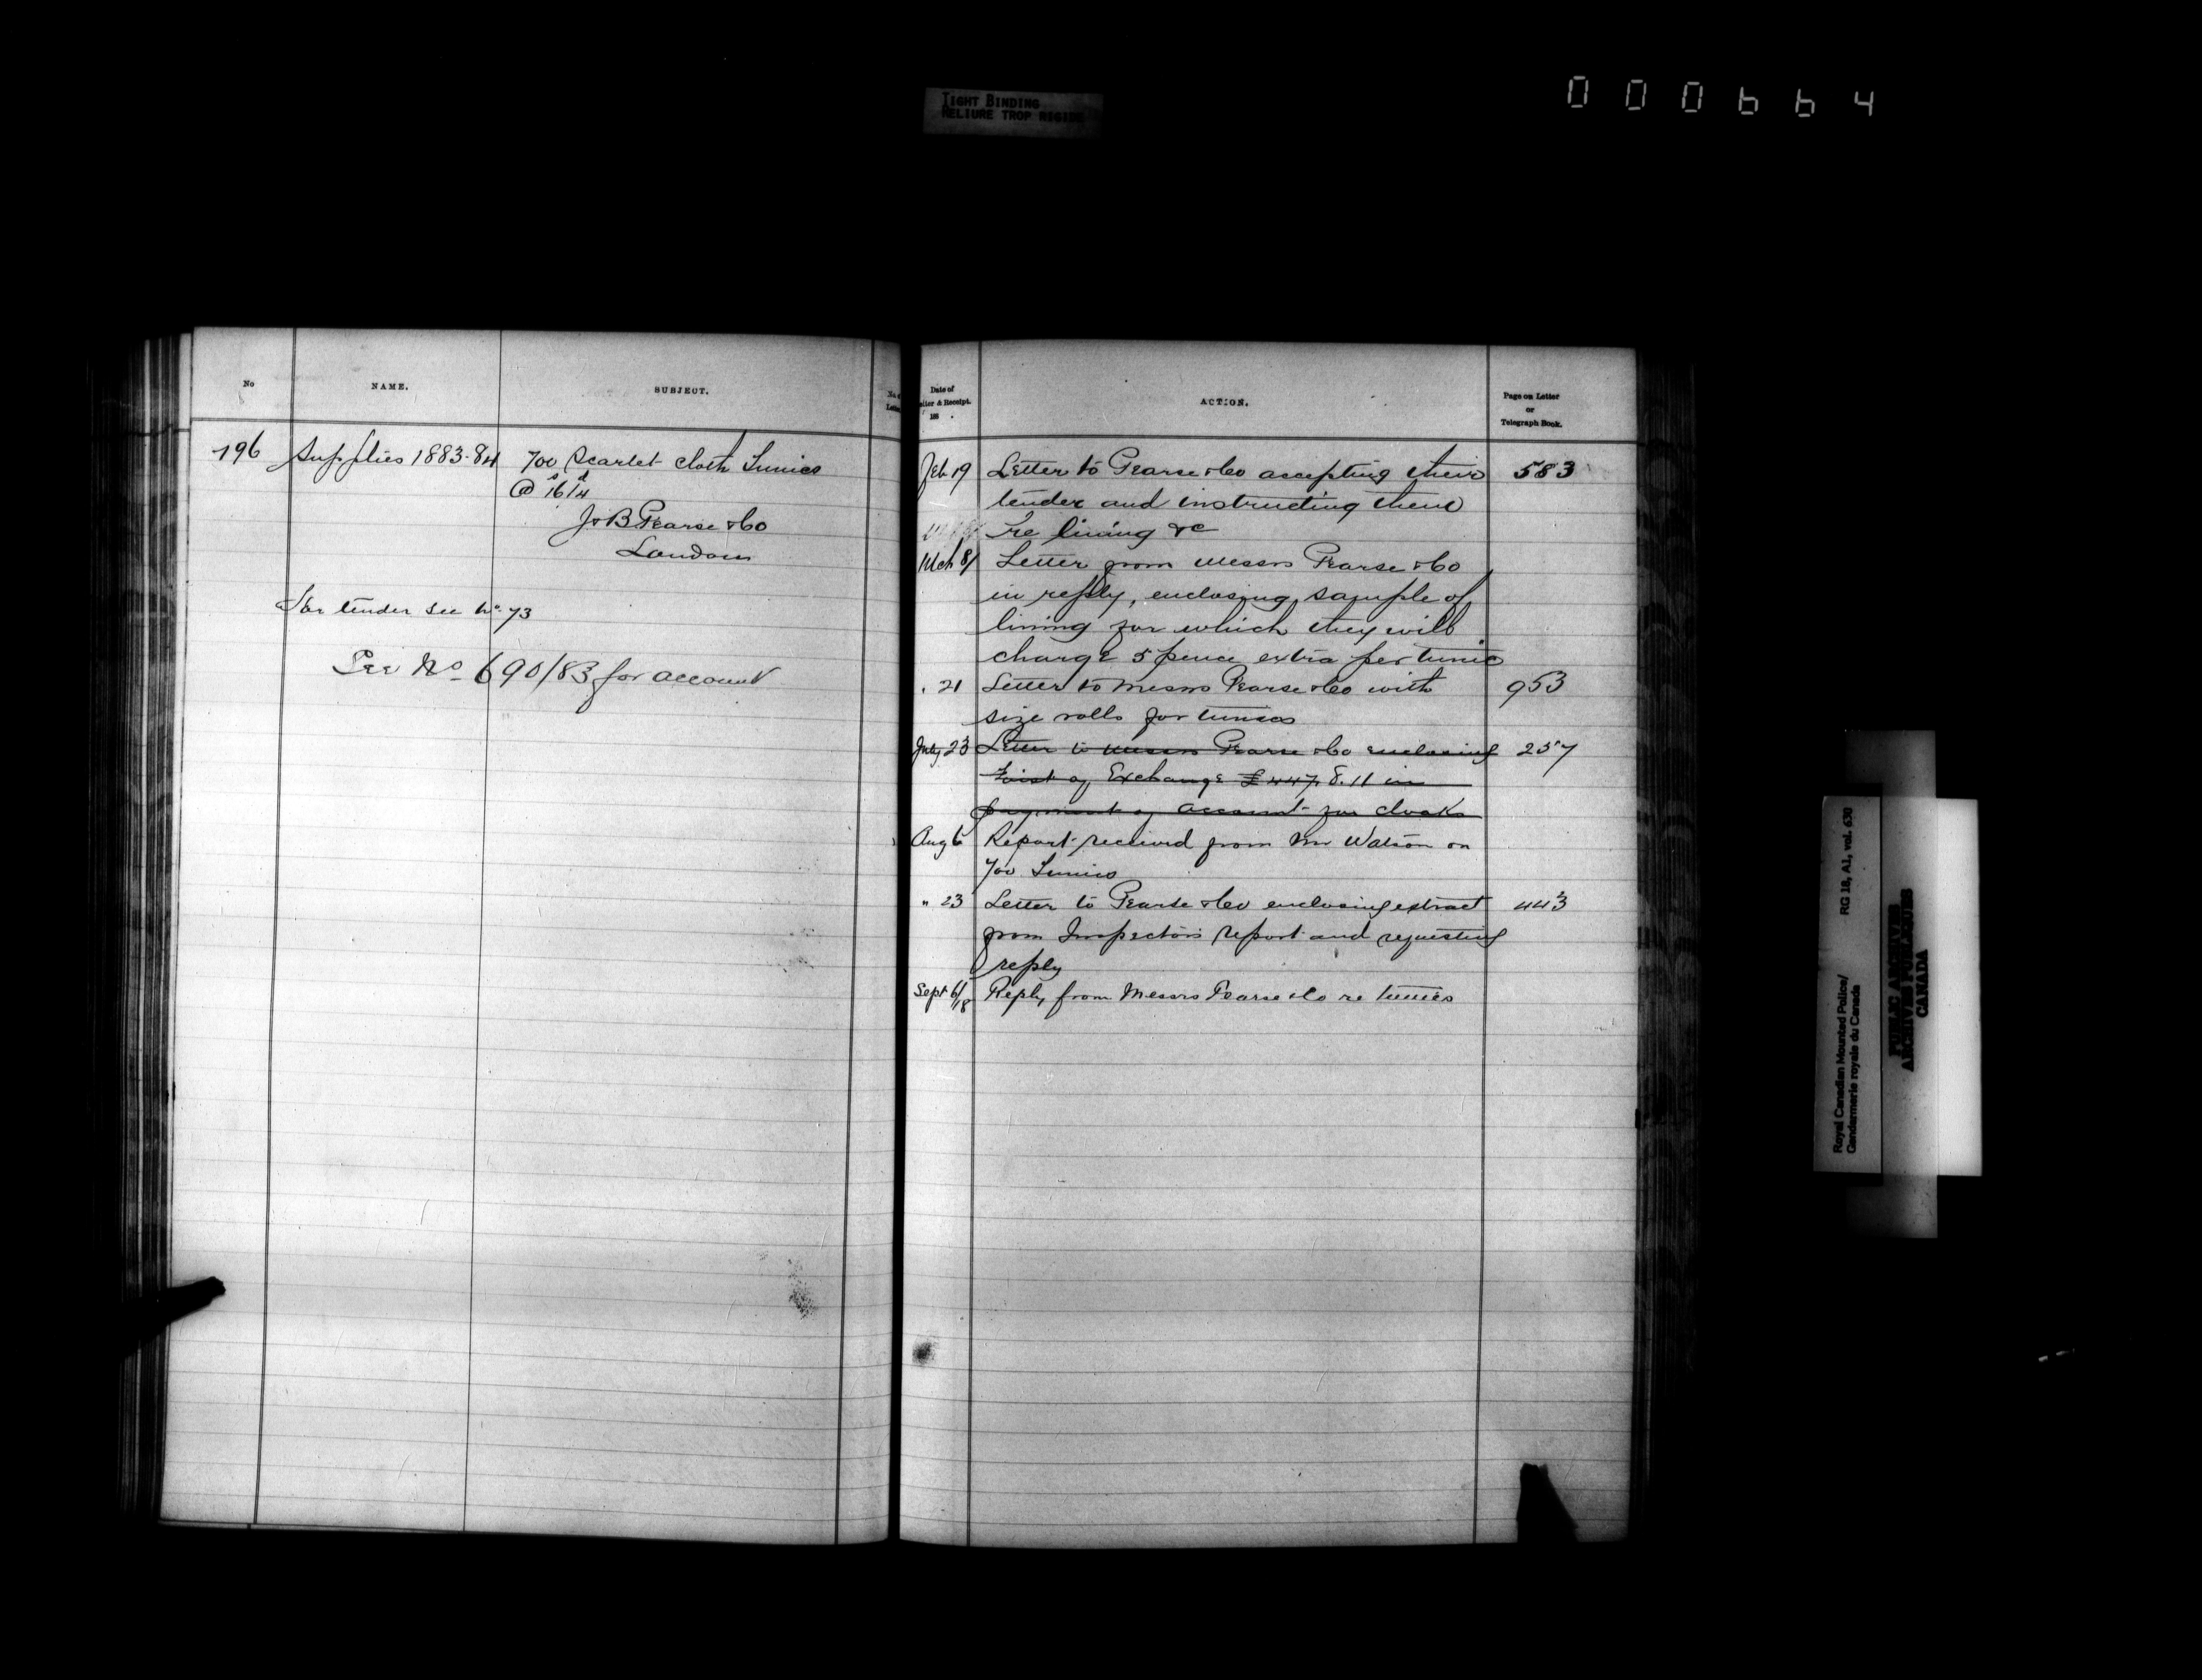 TIGHT BINDING
RELIURE TROP RIGIDE
000664
No
NAME.
SUBJECT.
196 Supplies 1883-84 700 Scarlet cloth Tunics
@ 16s/4d
J & B Pearse & Co
London
For tender see No. 73
See No 690/83 for account
Date of
Letter & Receipt.
188 .
ACTION.
Page on Letter
or
Telegraph Book.
Feb 19 Letter to Pearse & Co accepting their 583
tender and instructing them
re lining &c
Mch 8/ Letter from Messrs Pearse & Co
in reply, enclosing sample of
lining for which they will
charge 5 pence extra per tunic
" 21 Letter to Messrs Pearse & Co with 953
size rolls for tunics
July 23 Letter to Messrs Pearse & Co enclosing 257
First of Exchange £447. 8. 11 in
payment of account for cloaks
Aug 6 Report received from Mr Watson on
700 Tunics
" 23 Letter to Pearse & Co enclosing extract 443
from Inspectors report and requesting
reply
Sept 6/18 Reply from Messrs Pearse & Co re tunics
Royal Canadian Mounted Police/ RG 18, A1, vol. 630
Gendarmerie royale du Canada
PUBLIC ARCHIVES
ARCHIVES PUBLIQUES
CANADA